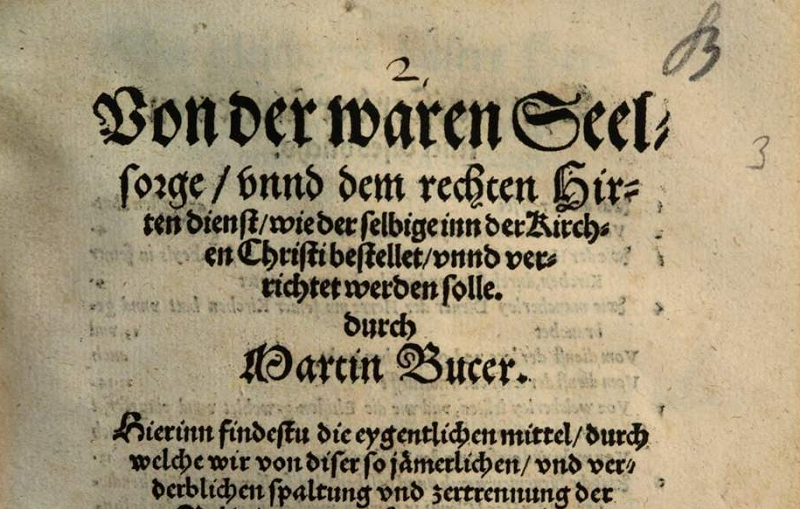 2.
Von der waren Seel⸗
sorge / vnnd dem rechten Hir⸗
ten dienst / wie der selbige inn der Kirch⸗
en Christi bestellet / vnnd ver⸗
richtet werden solle.
durch
Martin Bucer.
Hierinn findestu die eygentlichen mittel / durch
welche wir von diser so jämerlichen / vnd ver⸗
derblichen spaltung vnd zertrennung der
3